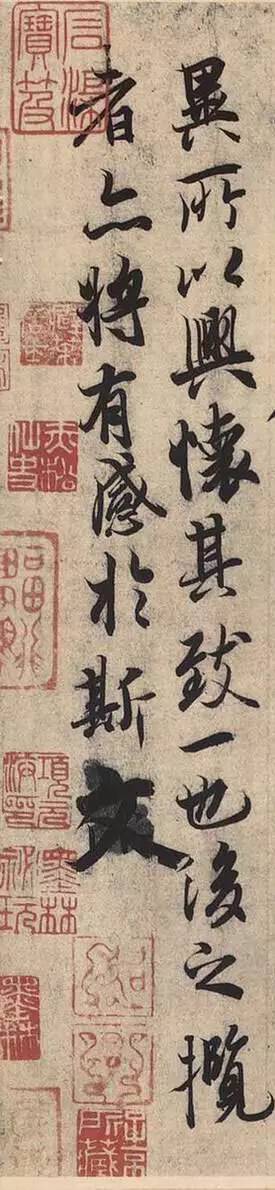 異所以興懷其致一也後之攬
者亦將有感於斯文